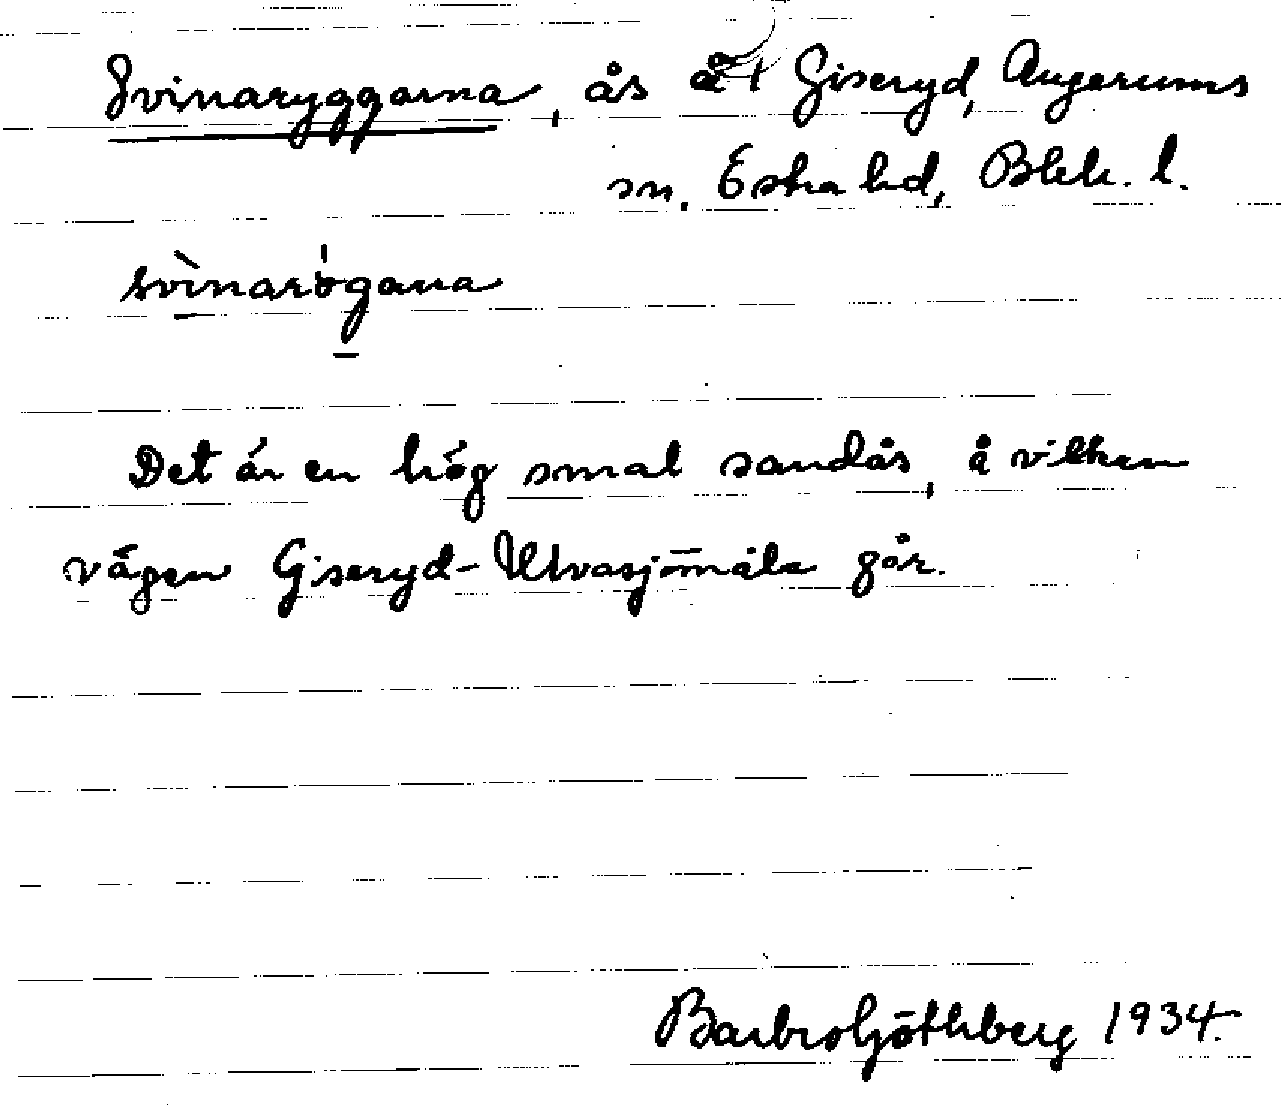 Svinaryggarna, ås åt Giseryd, Augerums
sn. Östra hd, Blek. l.
svìnarögana
Det är en hög smal sandås, å vilken
vägen Giseryd-Ulvasjömåla går.
Barbro Göthberg 1934.